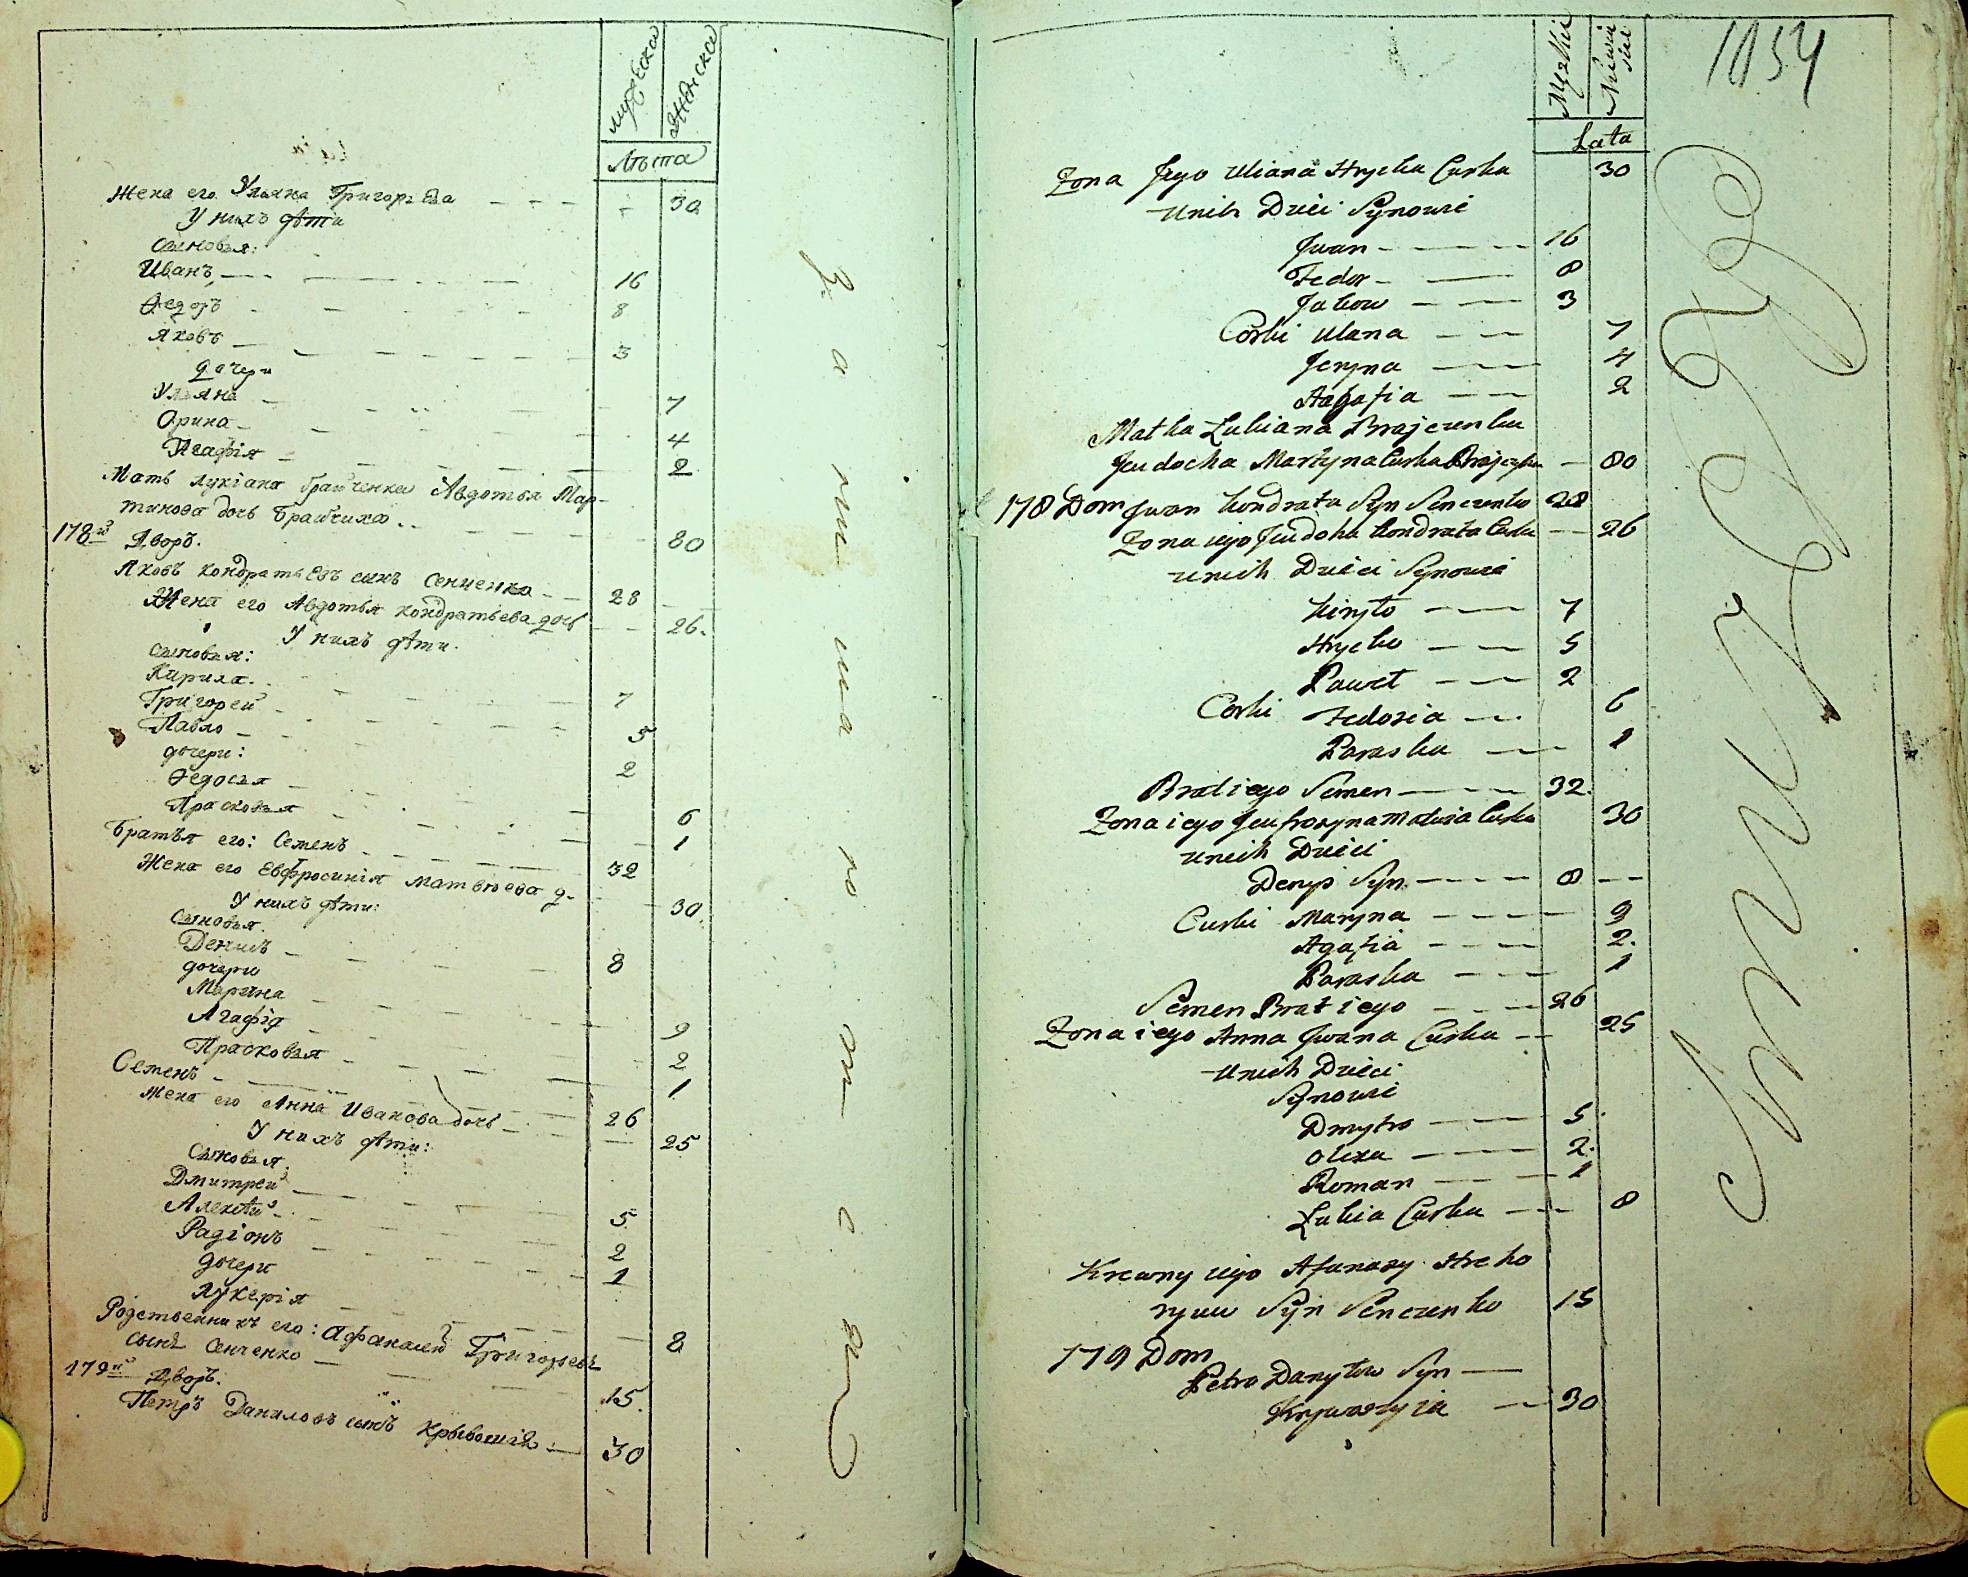 мужеска
женска
Лѣта
Жена его Ульяна Григорьева - - - - 30
У нихъ дѣти
сыновья:
Иванъ, - - - 16
Федоръ - - - 8
Яковъ - - - 3
дочери
Ульяна - - - 7
Орина - - - 4
Агафія - - - 2
Мать Лукіана Брайченка Авдотья Мар-
тинова дочь Брайчиха - - - 80
178й Дворъ.
Яковъ Кондратьевъ сынъ Сенченко - - 28
Жена его Авдотья Кондратьева дочь - - 26.
У нихъ дѣти.
сыновья:
Кирила. - - - 7
Григорей - - - 5
Павло - - - 2
дочери:
Федосья - - - 6
Прасковья - - - 1
Братья его: Семенъ - - - 32
Жена его Евфросинія Матвѣева д. - - 30.
У нихъ дѣти:
Сыновья.
Денисъ - - - 8
дочери
Марина - - - 9
Агафія - - - 2
Прасковья - - - 1
Семенъ - - - 26
Жена его Анна Иванова дочь - - 25
У нихъ дѣти:
Сыновья.
Дмитрей - - - 5.
Алексѣй - - - 2
Радіонъ - - - 1
дочери
Лукерія - - - 8
Родственникъ его: Афанасей Григорьевъ
сынъ Сенченко - - - 15.
179й Дворъ.
Петръ Даниловъ сынъ Крывошія - 30
1054
Męzkie
Lata
Zona Jego Uliana Hryćka Curka 30
unich Dzieci Synowie
Jwan - - - 16
Fedor - - - 8
Jakow - - - 3
Corki Ulana - - - 7
Jeryna - - - 4
Hahafia - - - 2
Matka Łukiana Brajczenka
Jeudocha Martyna Curka Brajczycha - 80
178 Dom Jwan Kondrata Syn Senczenko 28
Zona iego Jeudoha Kondrata Curka - - 26
unich Dzieci Synowie
Kiryło - - - 7
Hryćko - - - 5
Paweł - - - 2
Corki Fedosia - - 6
Paraska - - 1
Brat iego Semen - - - 32.
Zona iego Jeufrosyna Matwia Curka 30
unich Dzieci
Denys Syn. - - - 8 - -
Curki Maryna - - - 9
Agafia - - - 2.
Paraska - - - 1
Semen Brat iego - - - 26
Zona iego Anna Jwana Curka - - 25
unich Dzieci
Synowie
Dmytro - - - 5
Olexa - - - 2.
Roman - - - 1
Łukia Curka - - - 8
Krewny iego Afanasy Hreho
ryiew Syn Senczenko 15
179 Dom
Petro Danyłow Syn -
Krywoszyia - 30